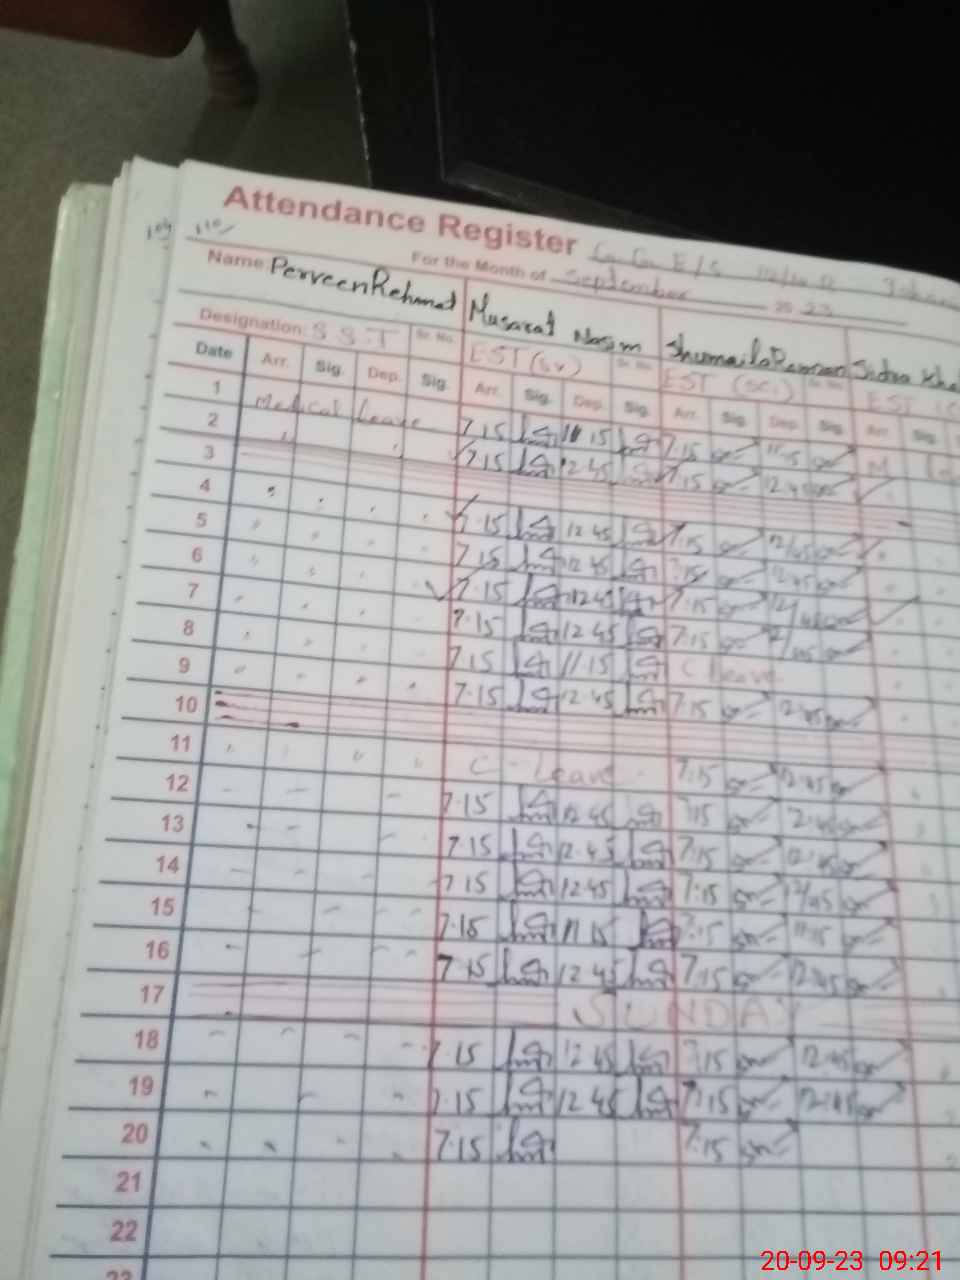 Attendance Register G. G. E/S
For the Month of September 20 23
Name: Perveen Rehmat Musarat Nasim Shumaila Ramzan Sidra
Designation: S.S.T Sr. No. EST (SV) Sr. No. EST (SCI) Sr. No. EST
Date Arr. Sig. Dep. Sig. Arr. Sig. Dep. Sig. Arr. Sig. Dep. Sig. Arr. Sig.
1 Medical Leave 7.15 11 15 7.15 11.15 M
2 7.15 12.45 7.15 12.45
3
4 7.15 12 45 7.15 12/45
5 7.15 12 45 7.15 12.45
6 7.15 12 45 7.15 12/45
7 7.15 12 45 7.15 12/45
8 7.15 11.15 C leave
9 7.15 12.45 7.15 12.45
10
11 C - Leave 7.15 12.45
12 7.15 12.45 7.15 12.45
13 7.15 12.45 7.15 12.45
14 7.15 12.45 7.15 12/45
15 7.15 11 15 7.15 11.15
16 7.15 12 45 7.15 12.45
17 SUNDAY
18 7.15 12 45 7.15 12.45
19 7.15 12 45 7.15 12.45
20 7.15 7.15
21
22
23
20-09-23 09:21